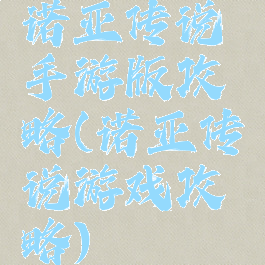 诺亚传说
手游版攻
略(诺亚传
说游戏攻
略)